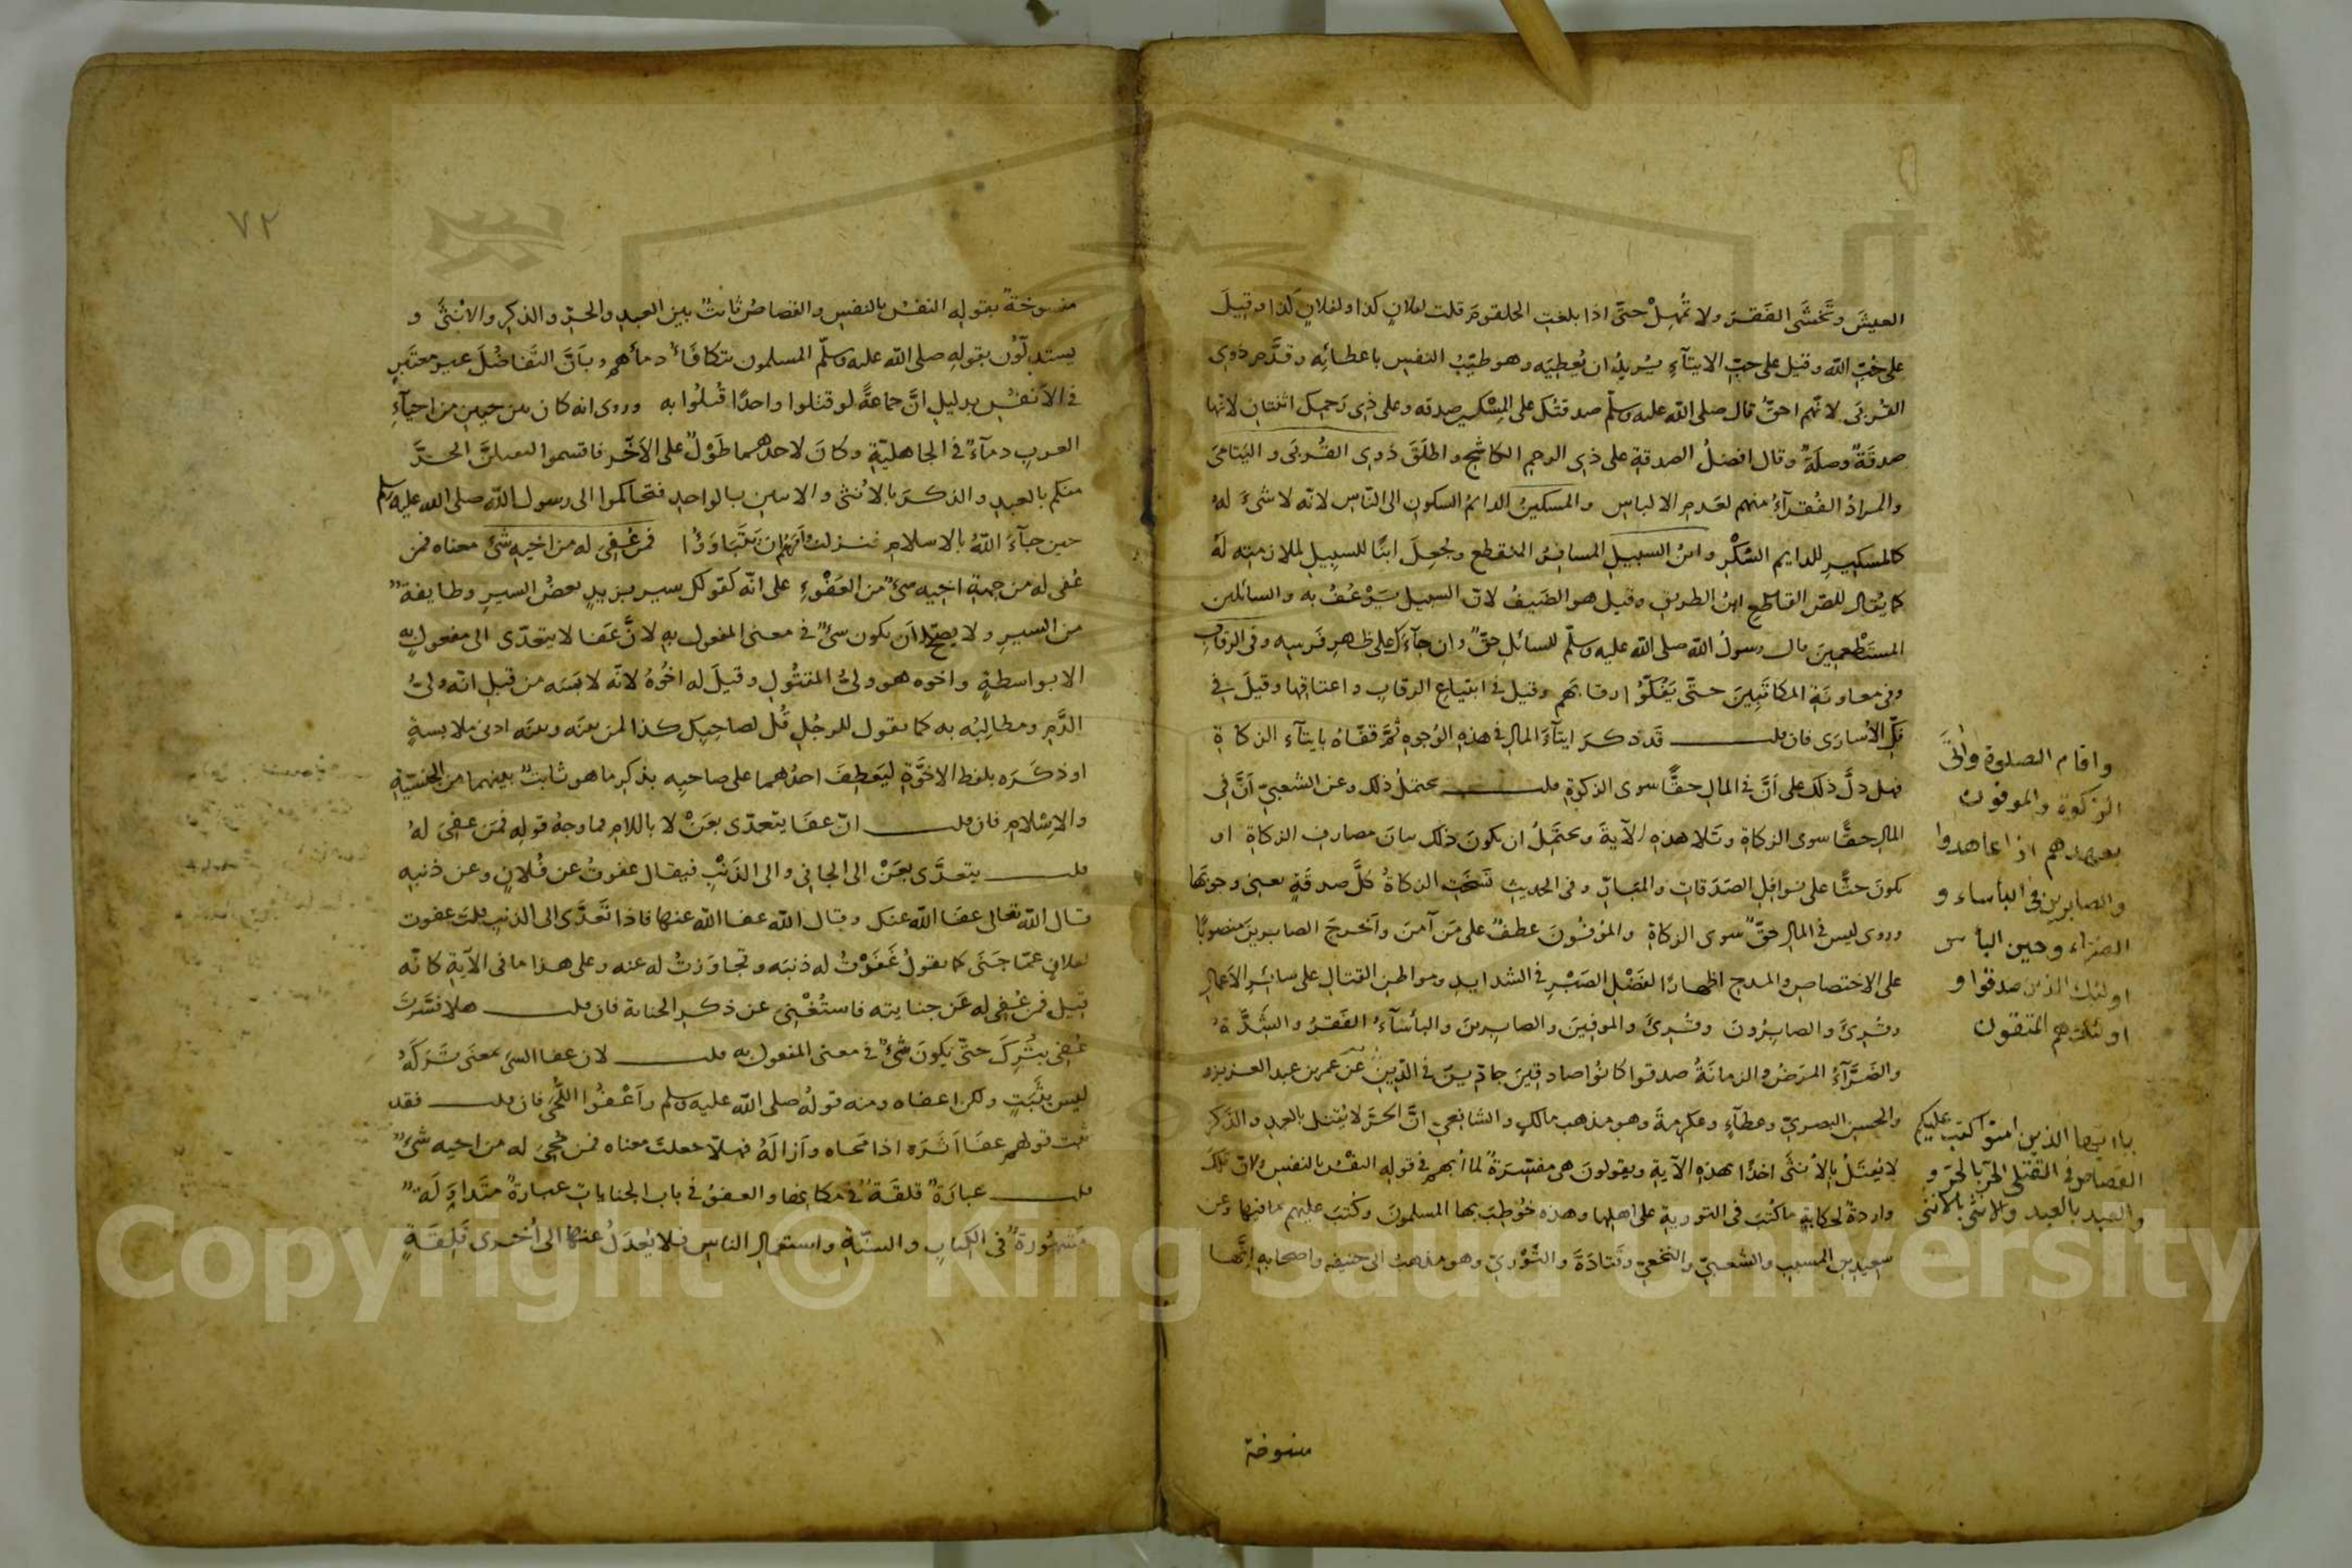 العيشَ وتَخشَى الفَقرَ ولا تُمهِلْ حتّى اذا بلغت الحلقومَ قلت لفلانٍ كذا ولفلانٍ كذا وقيلَ
على حُبِّ الله وقيل على حبّ الايتآءِ يُريدُ ان يُعطِيَه وهو طيّبُ النفسِ باعطائِه وقدَّم ذوى
القُربَى لانّهم احقُّ قال صلى الله عليه وسلّم صدقتُك على المِسْكين صدقه وعلى ذى رَحمِك اثنتان لانّها
صدقَةٌ وصلَةٌ وقال افضلُ الصدقةِ على ذى الرحِمِ الكاشِحِ واطلَقَ ذَوِى القُربَى واليَتامَى
والمرادُ الفُقرآءُ منهم لعَدمِ الالباسِ والمسكينُ الدايمُ السكونِ الى النّاسِ لانّه لا شىءَ لهُ
كالمسكيرِ للدايمِ السُّكْرِ وابنُ السبيلِ المسافِرُ المنقطع وجُعِلَ ابنًا للسبيلِ لملازمتِه لَهُ
كما يُقال للصّ القاطع ابنُ الطريق وقيل هو الضَيفُ لان السبيل يَرْعُفُ به والسائلين
المستَطْعمِينَ قال رسولُ الله صلى الله عليه وسلّم للسائلِ حقٌّ وان جآءَك على ظهرِ فَرسِه وفى الرقابِ
وفى معاونَةِ المكاتَبِينَ حتّى يَفُكّوُا رقابَهم وقيل فى ابتياعِ الرقابِ واعتاقِها وقيلَ فى
فكِّ الأُسارَى فان قلت قَد ذكرَ ايتآءَ المالِ فى هذه الوُجوهِ ثُمَّ قفّاهُ بايتآء الزكاةِ
فهل دلَّ ذلك على اَنَّ فى المالِ حقًّا سوى الزكوةِ قلت يحتملُ ذلك وعن الشعبىّ اَنَّ فى
المالِ حقًّا سوى الزكاةِ وتَلا هذهِ الآيةَ ويحتَمِلُ ان يكونَ ذلك بيانَ مصارفِ الزكاةِ او
يكونَ حثًّا على نوافِلِ الصَدَقاتِ والمَبَارّ وفى الحديثِ نَسَخَتِ الزكاةُ كلَّ صدقَةٍ يعنى وجوبَها
وروى ليس فى المالِ حقٌّ سوى الزكاةِ والمُوْفُونَ عطفٌ على مَن آمنَ واَخرجَ الصابرينَ منصوبًا
على الاختصاصِ والمدحِ اظهارًا لفَضْلِ الصَبْرِ فى الشدايدِ ومواطنِ القتالِ على سائرِ الاَعمالِ
وقُرِئَ والصابِرُونَ وقُرِئَ والموفِينَ والصابرينَ والبأسآءُ الفَقرُ والشِّدَّةُ
والضَرَّآءُ المرَضُ والزمانَةُ صدقوا كانُوا صادقينَ جادّينَ فى الدّين عَن عمر بن عبد العزيز و
والحسنِ البصرىِّ وعطآءٍ وعكرمةَ وهو مذهب مالكٍ والشافعىِّ انَّ الحرَّ لا يُقتل بالعبدِ والذَكر
لا يُقتلُ بالأُنثَى اخذًا بهذهِ الآيةِ ويقولونَ هى مفسّرَةٌ لما اُبهم فى قوله النفس بالنفس ولان تلكَ
واردةٌ لحكايةِ ما كُتبَ فى التوريةِ على اهلها وهذه خُوطِبَ بها المسلمونَ وكُتبَ عليهم ما فيها وعن
سعيدِ بنِ المسيب والشعبىِّ والنخعىّ وقَتادَةَ والثَّوْرىّ وهو مذهبُ ابى حنيفه واصحابه اِنَّها
واقام الصلوة وآتى
الزكوة والموفون
بعهدهم اذا عاهدوا
والصابرين فى البأساء و
الضراء وحين البأس
اولئك الذين صدقوا و
اولئك هم المتقون
يا ايها الذين امنوا كتب عليكم
القصاص فى القتلى الحرّ بالحر و
والعبد بالعبد والانثى بالانثى
منسوخة
٧٢
منسوخةٌ بقوله النفسُ بالنفسِ والقصاصُ ثابتٌ بين العبدِ والحرِّ والذكرِ والانثى و
يستدِلّوُن بقولِه صلى الله عليه وسلّم المسلمون تتكافَأُ دمآءُهم وباَنَّ التَّفاضُلَ غير معتَبرٍ
فى الاَنفُسِ بدليلِ انَّ جماعةً لو قتلوا واحدًا قُتلُوا به وروى انه كان بين حيين من احيآءِ
العربِ دمآءٌ فى الجاهليّةِ وكانَ لاحدهما طَوْلٌ على الآخَر فاقسموا لنقتلنَّ الحرَّ
منكم بالعبدِ والذكرَ بالاُنثى والاثنين بالواحد فتحاكموا الى رسول الله صلى الله عليه وسلم
حين جآءَ اللهُ بالاسلامِ فنزلتْ وامَرَهُم ان يَتَباوَؤُا فمن عُفِىَ له من اخيه شىء معناه فمن
عُفى له من جهةِ اخيه شىءٌ من العَفْوِ على انّه كقولك سير بزيدٍ بعضُ السيرِ وطايفةٌ
من السيرِ ولا يصحّ اَن يكون شىءٌ فى معنى المفعولِ بهِ لانَّ عَفا لا يتعدّى الى مفعولٍ به
الا بواسطةٍ واخوه هو ولىُّ المقتُولِ وقيلَ له اخُوهُ لانّه لابَسَه من قبلِ انّه ولىُّ
الدَّمِ ومطالِبُه به كما تقول للرجُلِ قُل لصاحِبِك كذا لمن بينَه وبينَه ادنى ملابسةٍ
او ذكَرَه بلفظِ الاخوَّةِ ليَعطِفَ احدُهما على صاحبِه بذكرِ ما هو ثابتٌ بينهما من الجنسيّةِ
والاِسْلامِ فان قلت انّ عفَا يتعدّى بعَنْ لا باللامِ فما وجهُ قولِه فمَن عفِىَ لهُ
قلت يتعدَّى بعَنْ الى الجانى والى الذَنْبِ فيقال عفوتُ عن فُلانٍ وعن ذنبِه
قال الله تعالى عفَا الله عنك وقال الله عفا الله عنها فاذا تَعدَّى الى الذنبِ قلتَ عفوت
لفلانٍ عمّا جَنَى كما تقولُ غَفَرْتُ له ذنبَه وتجاوَزتُ له عنه وعلى هذا ما فى الآيةِ كانّه
قيل فمن عُفِى له عَن جنايتِه فاستُغْنِىَ عن ذكرِ الجناية فان قلت هلا فسَّرتَ
عُفِىَ بتُرِكَ حتّى يكونَ شىءٌ فى معنى المفعول به قلت لان عفا الشىَ بمعنَى تَركَهُ
ليس بثَبَتٍ ولكن اعفاه ومنه قولُهُ صلى الله عليه وسلم واَعْفُوا اللُّحَى فان قلت فقد
ثبت قولهم عفَا اَثَرَه اذا مَحاه واَزالَهُ فهلّا جعلتَ معناه فمن مُحِىَ له من اخيه شىءٌ
قلت عبارَةٌ قلقَةٌ فى مكانها والعفوُ فى بابِ الجناياتِ عبارةٌ متَداوَلَةٌ
مَشهُورةٌ فى الكتابِ والسنّةِ واستعمالِ الناسِ فلا يُعدَلُ عنها الى اُخرى قَلِقَةٍ
Copyright © King Saud University